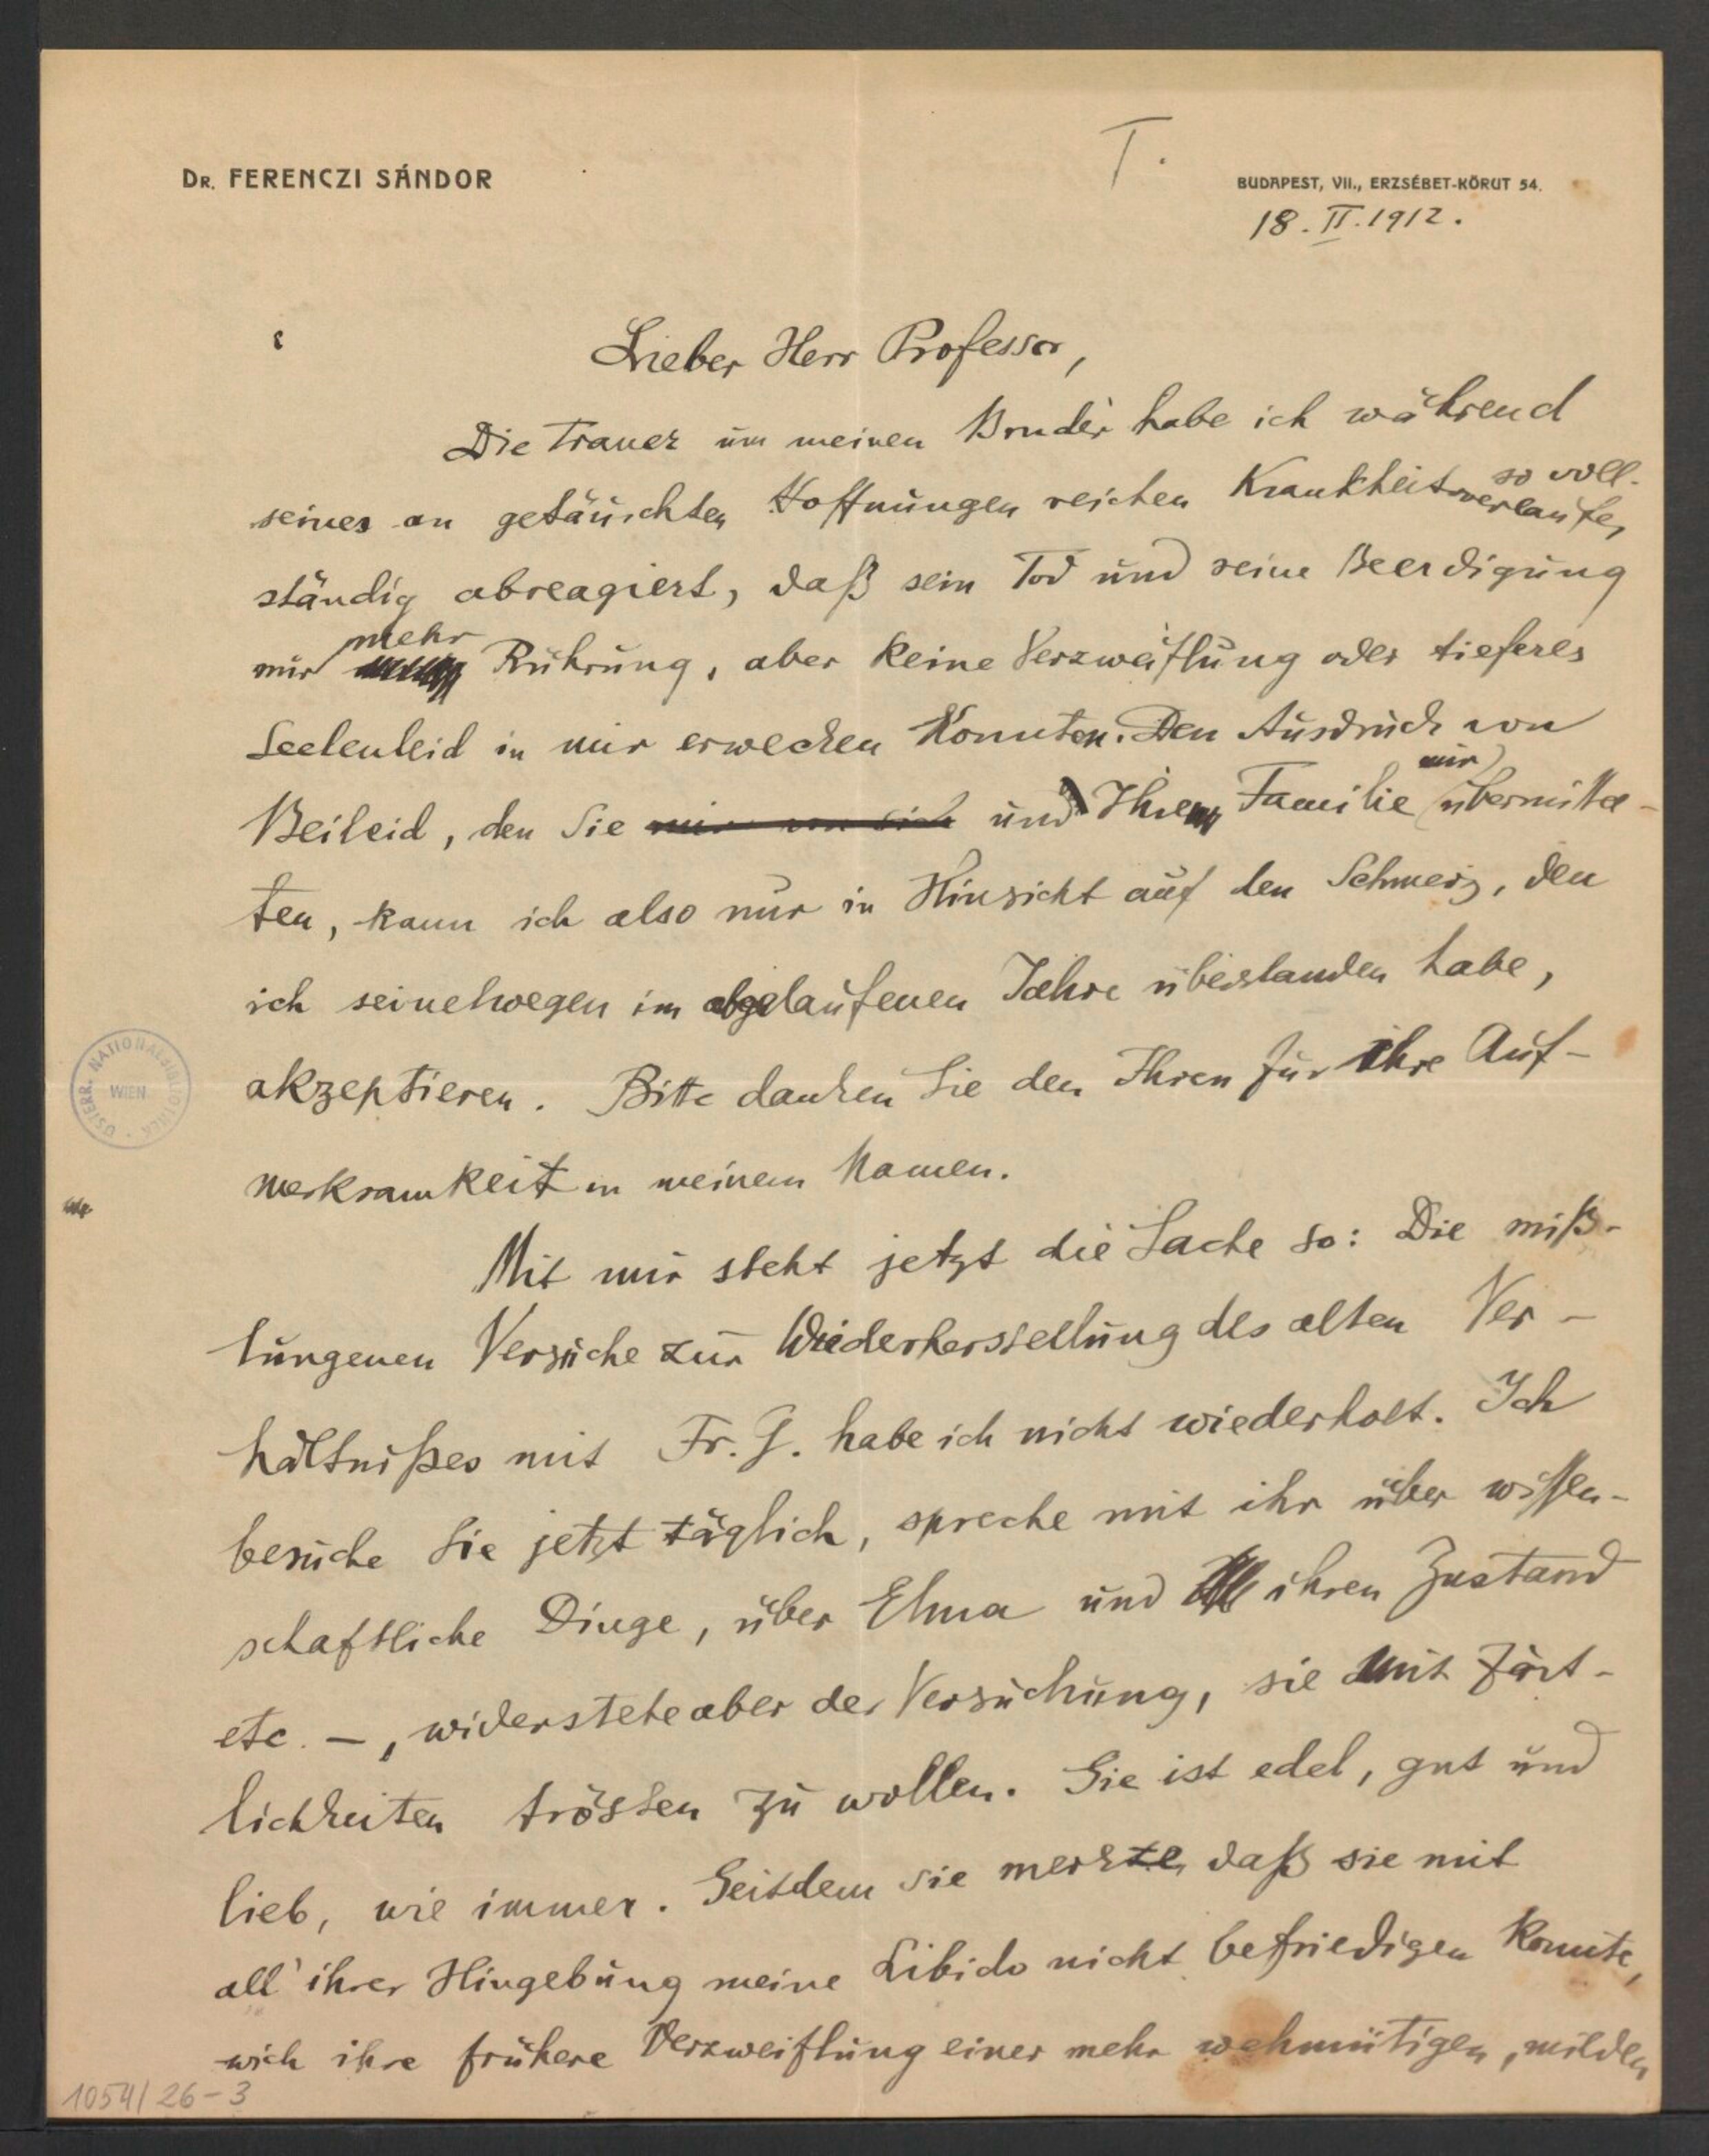 T.
DR. FERENCZI SÁNDOR
BUDAPEST, VII., ERZSÉBET-KÖRUT 54.
18. II. 1912.
Lieber Herr Professor,
Die Trauer um meinen Bruder habe ich während
seines an getäuschten Hoffnungen reichen Krankheitsverlaufes so voll-
ständig abreagiert, daß sein Tod und seine Beerdigung
nur mehr Rührung, aber keine Verzweiflung oder tieferes
Seelenleid in mir erwecken konnten. Den Ausdruck von
Beileid, den Sie mir von sich und Ihrer Familie mir übermittel-
ten, kann ich also nur in Hinsicht auf den Schmerz, den
ich seinetwegen im abgelaufenen Jahre überstanden habe,
akzeptieren. Bitte danken Sie den Ihren für ihre Auf-
merksamkeit in meinem Namen.
Mit mir steht jetzt die Sache so: Die miß-
lungenen Versuche zur Wiederherstellung des alten Ver-
hältnißes mit Fr. G. habe ich nicht wiederholt. Ich
besuche Sie jetzt täglich, spreche mit ihr über wissen-
schaftliche Dinge, über Elma und ihren Zustand
etc. –, widerstehe aber der Versuchung, sie mit Zärt-
lichkeiten trösten zu wollen. Sie ist edel, gut und
lieb, wie immer. Seitdem sie merkte, daß sie mit
all' ihrer Hingebung meine Libido nicht befriedigen konnte,
wich ihre frühere Verzweiflung einer mehr wehmütigen, milden
ÖSTERR. NATIONALBIBLIOTHEK WIEN
1054/26-3